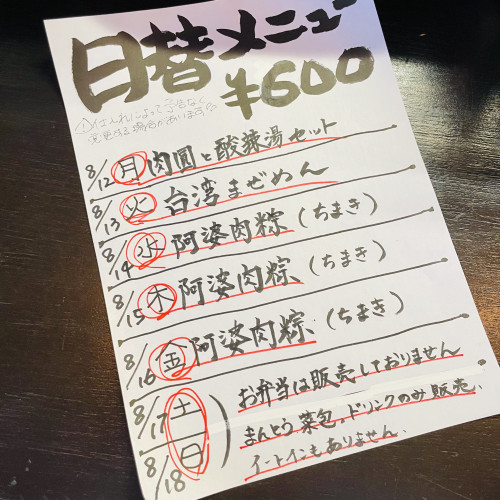 日替メニュー
¥600
①仕入れによって予告なく
変更する場合があります
8/12 月 肉圓と酸辣湯セット
8/13 火 台湾まぜめん
8/14 水 阿婆肉粽(ちまき)
8/15 木 阿婆肉粽(ちまき)
8/16 金 阿婆肉粽(ちまき)
8/17 土
8/18 日
お弁当は販売しておりません
まんとう、菜包、ドリンクのみ販売.
イートインもありません.